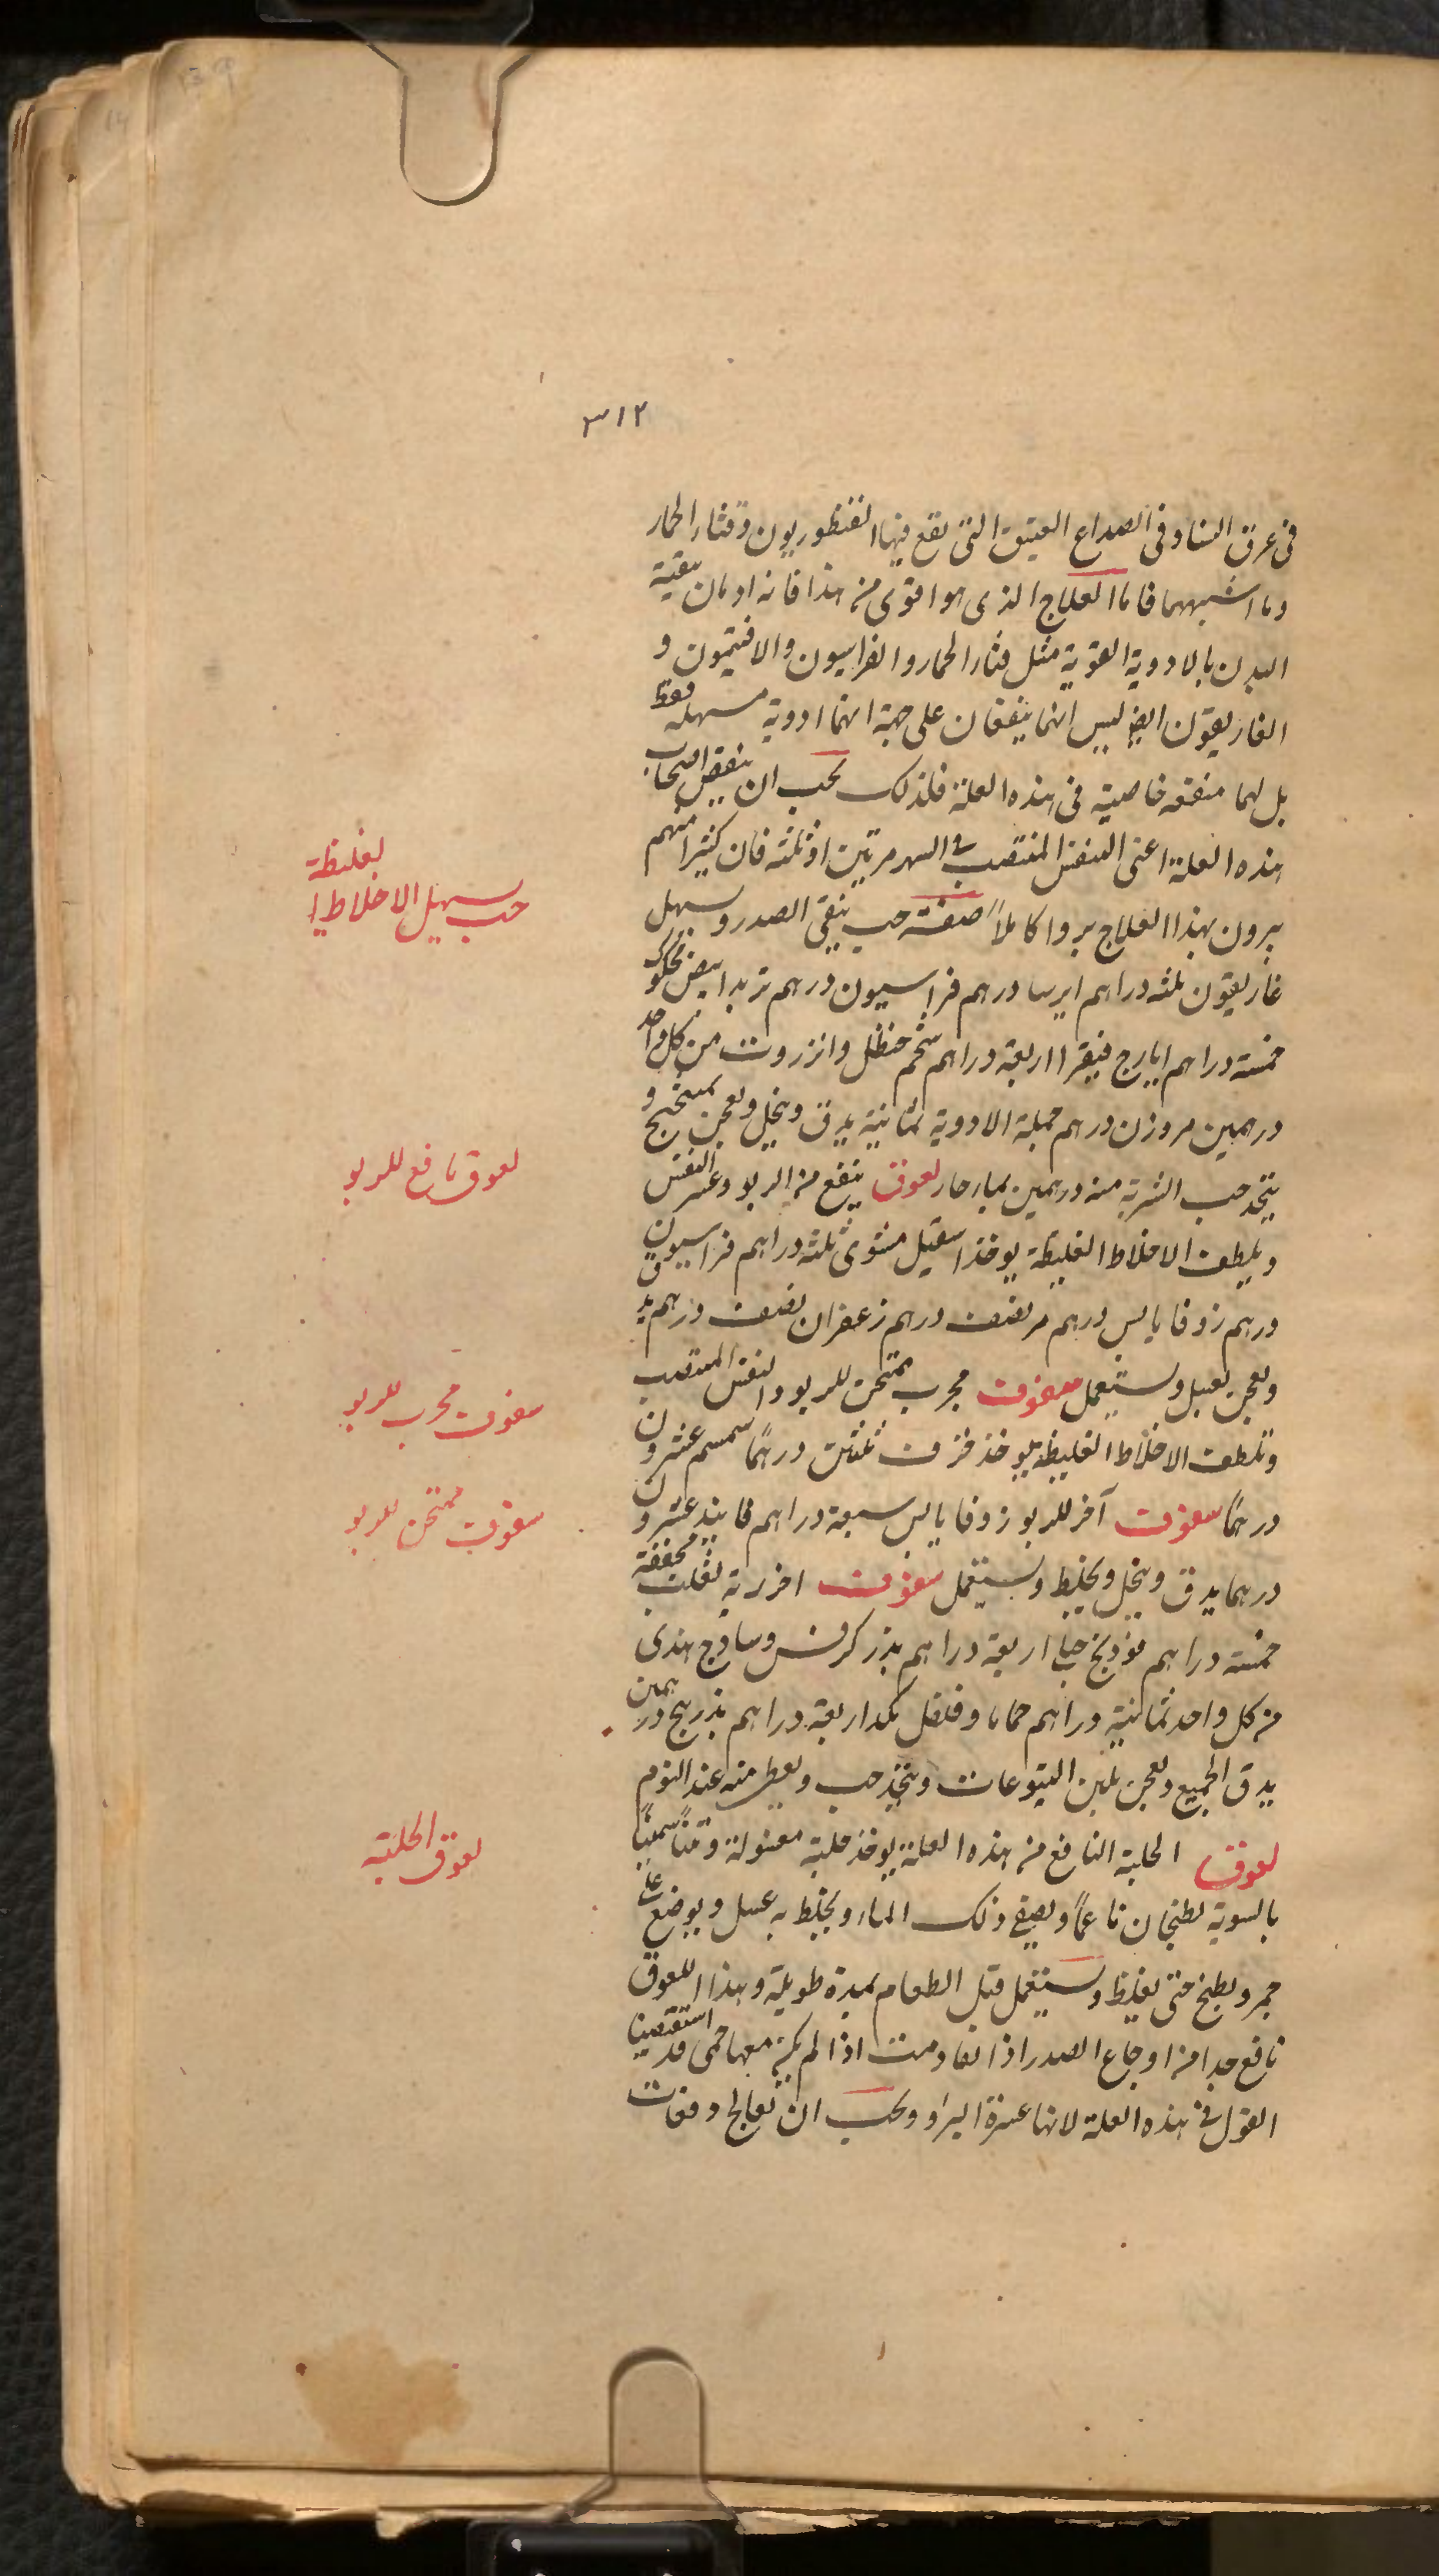 ٣١٢
فى عرق النسا وفى الصداع العتيق التى يقع فيها القنطوريون وقثاء الحمار
وما اشبههما فاما العلاج الذى هو اقوى من هذا فانه ادمان تنقية
البدن بالادوية القوية مثل قثاء الحمار والفراسيون والافتيمون و
الغاريقون ايض ليس انهما ينفعان على جهة انهما ادوية مسهلة فقط
بل لهما منفعه خاصية فى هذه العلة فلذلك يجب ان ينقض اصحاب
هذه العلة اعنى النفس المنتصب فى الشهر مرتين او ثلثه فان كثيرا منهم
يبرون بهذا العلاج بروا كاملاً صفته حب ينقى الصدر ويسهل
غاريقون ثلثه دراهم ايرسا درهم فراسيون درهم تربد ابيض محكوك
خمسة دراهم ايارج فيقرا اربعة دراهم شحم حنظل وانزروت من كل واحد
درهمين مر وزن درهم جملة الادوية ثمانية يدق وينخل ويعجن بميبختج و
يتخذ حب الشربة منه درهمين بماء حار لعوق ينفع من الربو وعسر النفس
ويلطف الاخلاط الغليظة يوخذ اسقيل مشوى ثلثه دراهم فراسيون
درهم زوفا يابس درهم مر نصف درهم زعفران نصف درهم يدق
ويعجن بعسل ويستعمل سفوف مجرب ممتحن للربو والنفس المنتصب
وتلطف الاخلاط الغليظة يوخذ حرف ثلثين درهما سمسم عشرون
درهما سفوف آخر للربو زوفا يابس سبعة دراهم فانيد عشرون
درهما يدق وينخل ويخلط ويستعمل سفوف اخر رية ثعلب مجففة
خمسة دراهم فوذنج جبلى اربعة دراهم بذر كرفس وساذج هندى
من كل واحد ثمانية دراهم حماما وفلفل بكد اربعة دراهم بذر بنج درهمين
يدق الجميع ويعجن بلبن اليتوعات ويتخذ حب ويعطى منه عند النوم
لعوق الحلبة النافع من هذه العلة يوخذ حلبة مغسولة وتيناً سمينا
بالسوية يطبخان ناعماً ويصفى ذلك الماء ويخلط به عسل ويوضع على
جمر ويطبخ حتى يغلظ ويستعمل قبل الطعام بمدة طويلة وهذا اللعوق
نافع جدا من اوجاع الصدر اذا تقادمت اذا لم يكن معها حمى قد استقصينا
القول فى هذه العلة لانها عسرة البراو ويجب ان تعالج دفعات
حب يسهل الاخلاط الغليظة
لعوق نافع للربو
سفوف مجرب للربو
سفوف ممتحن للربو
لعوق الحلبة